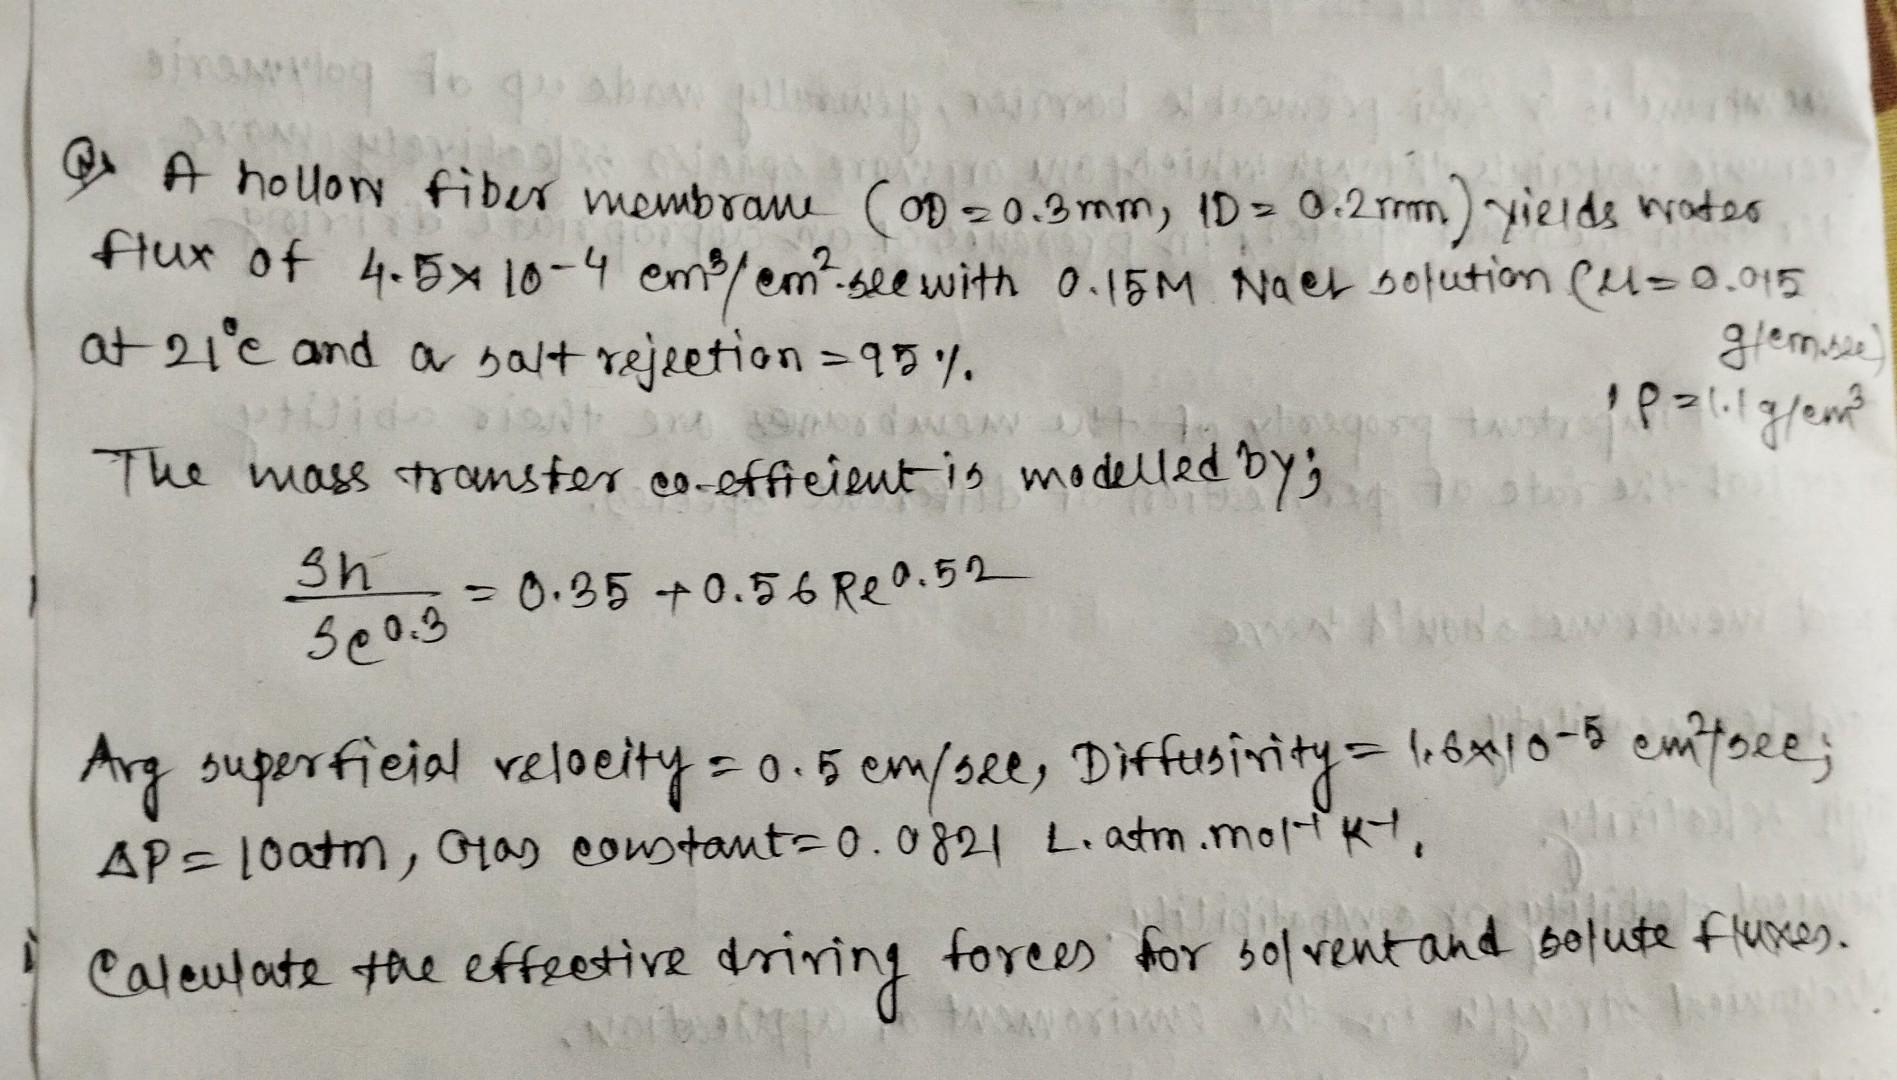 Q. A hollow fiber membrane (OD = 0.3mm, ID = 0.2mm) yields water
flux of 4.5 x 10-4 cm³/cm².sec with 0.15M NaCl solution (μ = 0.015
g/cm.sec)
at 21°C and a salt rejection = 95%.
, ρ = 1.1 g/cm³
The mass transfer co-efficient is modelled by;
Sh / Sc^0.3 = 0.35 + 0.56 Re^0.52
Avg superficial velocity = 0.5 cm/sec, Diffusivity = 1.6x10-5 cm²/sec;
ΔP = 10atm, Gas constant = 0.0821 L.atm.mol-1 K-1.
Calculate the effective driving forces for solvent and solute fluxes.